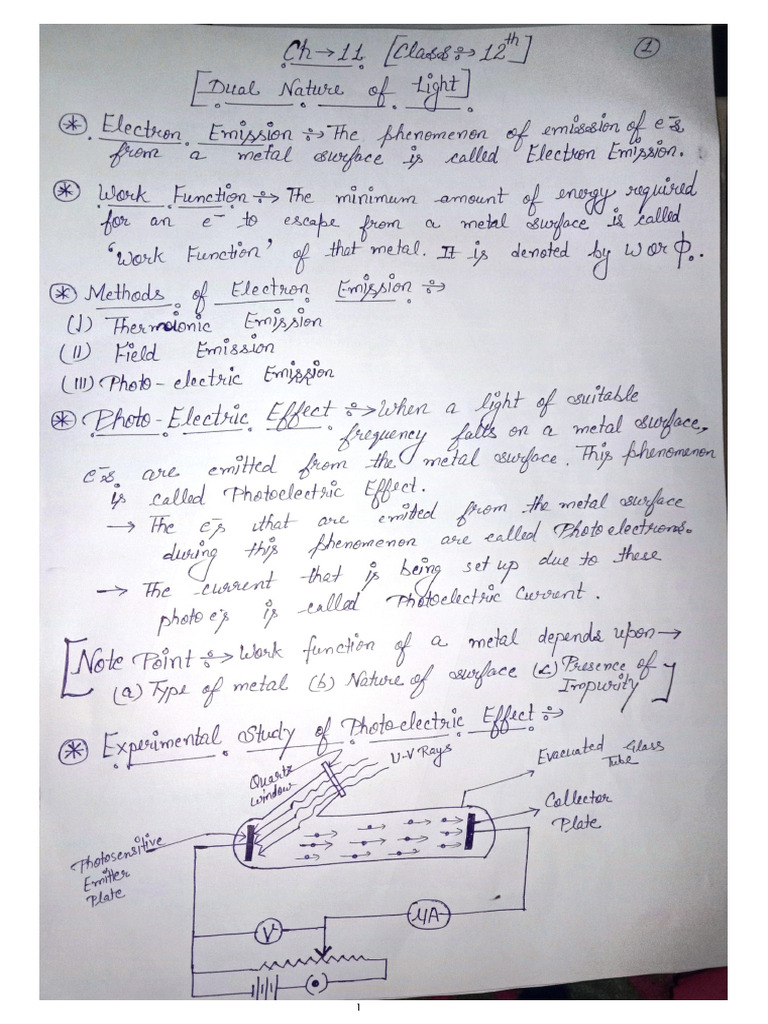 Ch → 11 [Class ÷→ 12th]
①
[Dual Nature of Light]
⊛ Electron Emission ÷→ The phenomenon of emission of e⁻s
from a metal surface is called Electron Emission.
⊛ Work Function ÷→ The minimum amount of energy required
for an e⁻ to escape from a metal surface is called
'Work Function' of that metal. It is denoted by W or Φ.
⊛ Methods of Electron Emission ÷→
(I) Thermoionic Emission
(II) Field Emission
(III) Photo-electric Emission
⊛ Photo-Electric Effect ÷→ When a light of suitable
frequency falls on a metal surface,
e⁻s are emitted from the metal surface. This phenomenon
is called Photoelectric Effect.
→ The e⁻s that are emitted from the metal surface
during this phenomenon are called Photo electrons.
→ The current that is being set up due to these
photo e⁻s is called Photoelectric Current.
[Note Point ÷→ Work function of a metal depends upon →
(a) Type of metal (b) Nature of surface (c) Presence of
Impurity]
⊛ Experimental Study of Photo-electric Effect ÷→
Quartz
window
U-V Rays
Evacuated Glass
Tube
Collector
Plate
Photosensitive
Emitter
Plate
V
μA
1